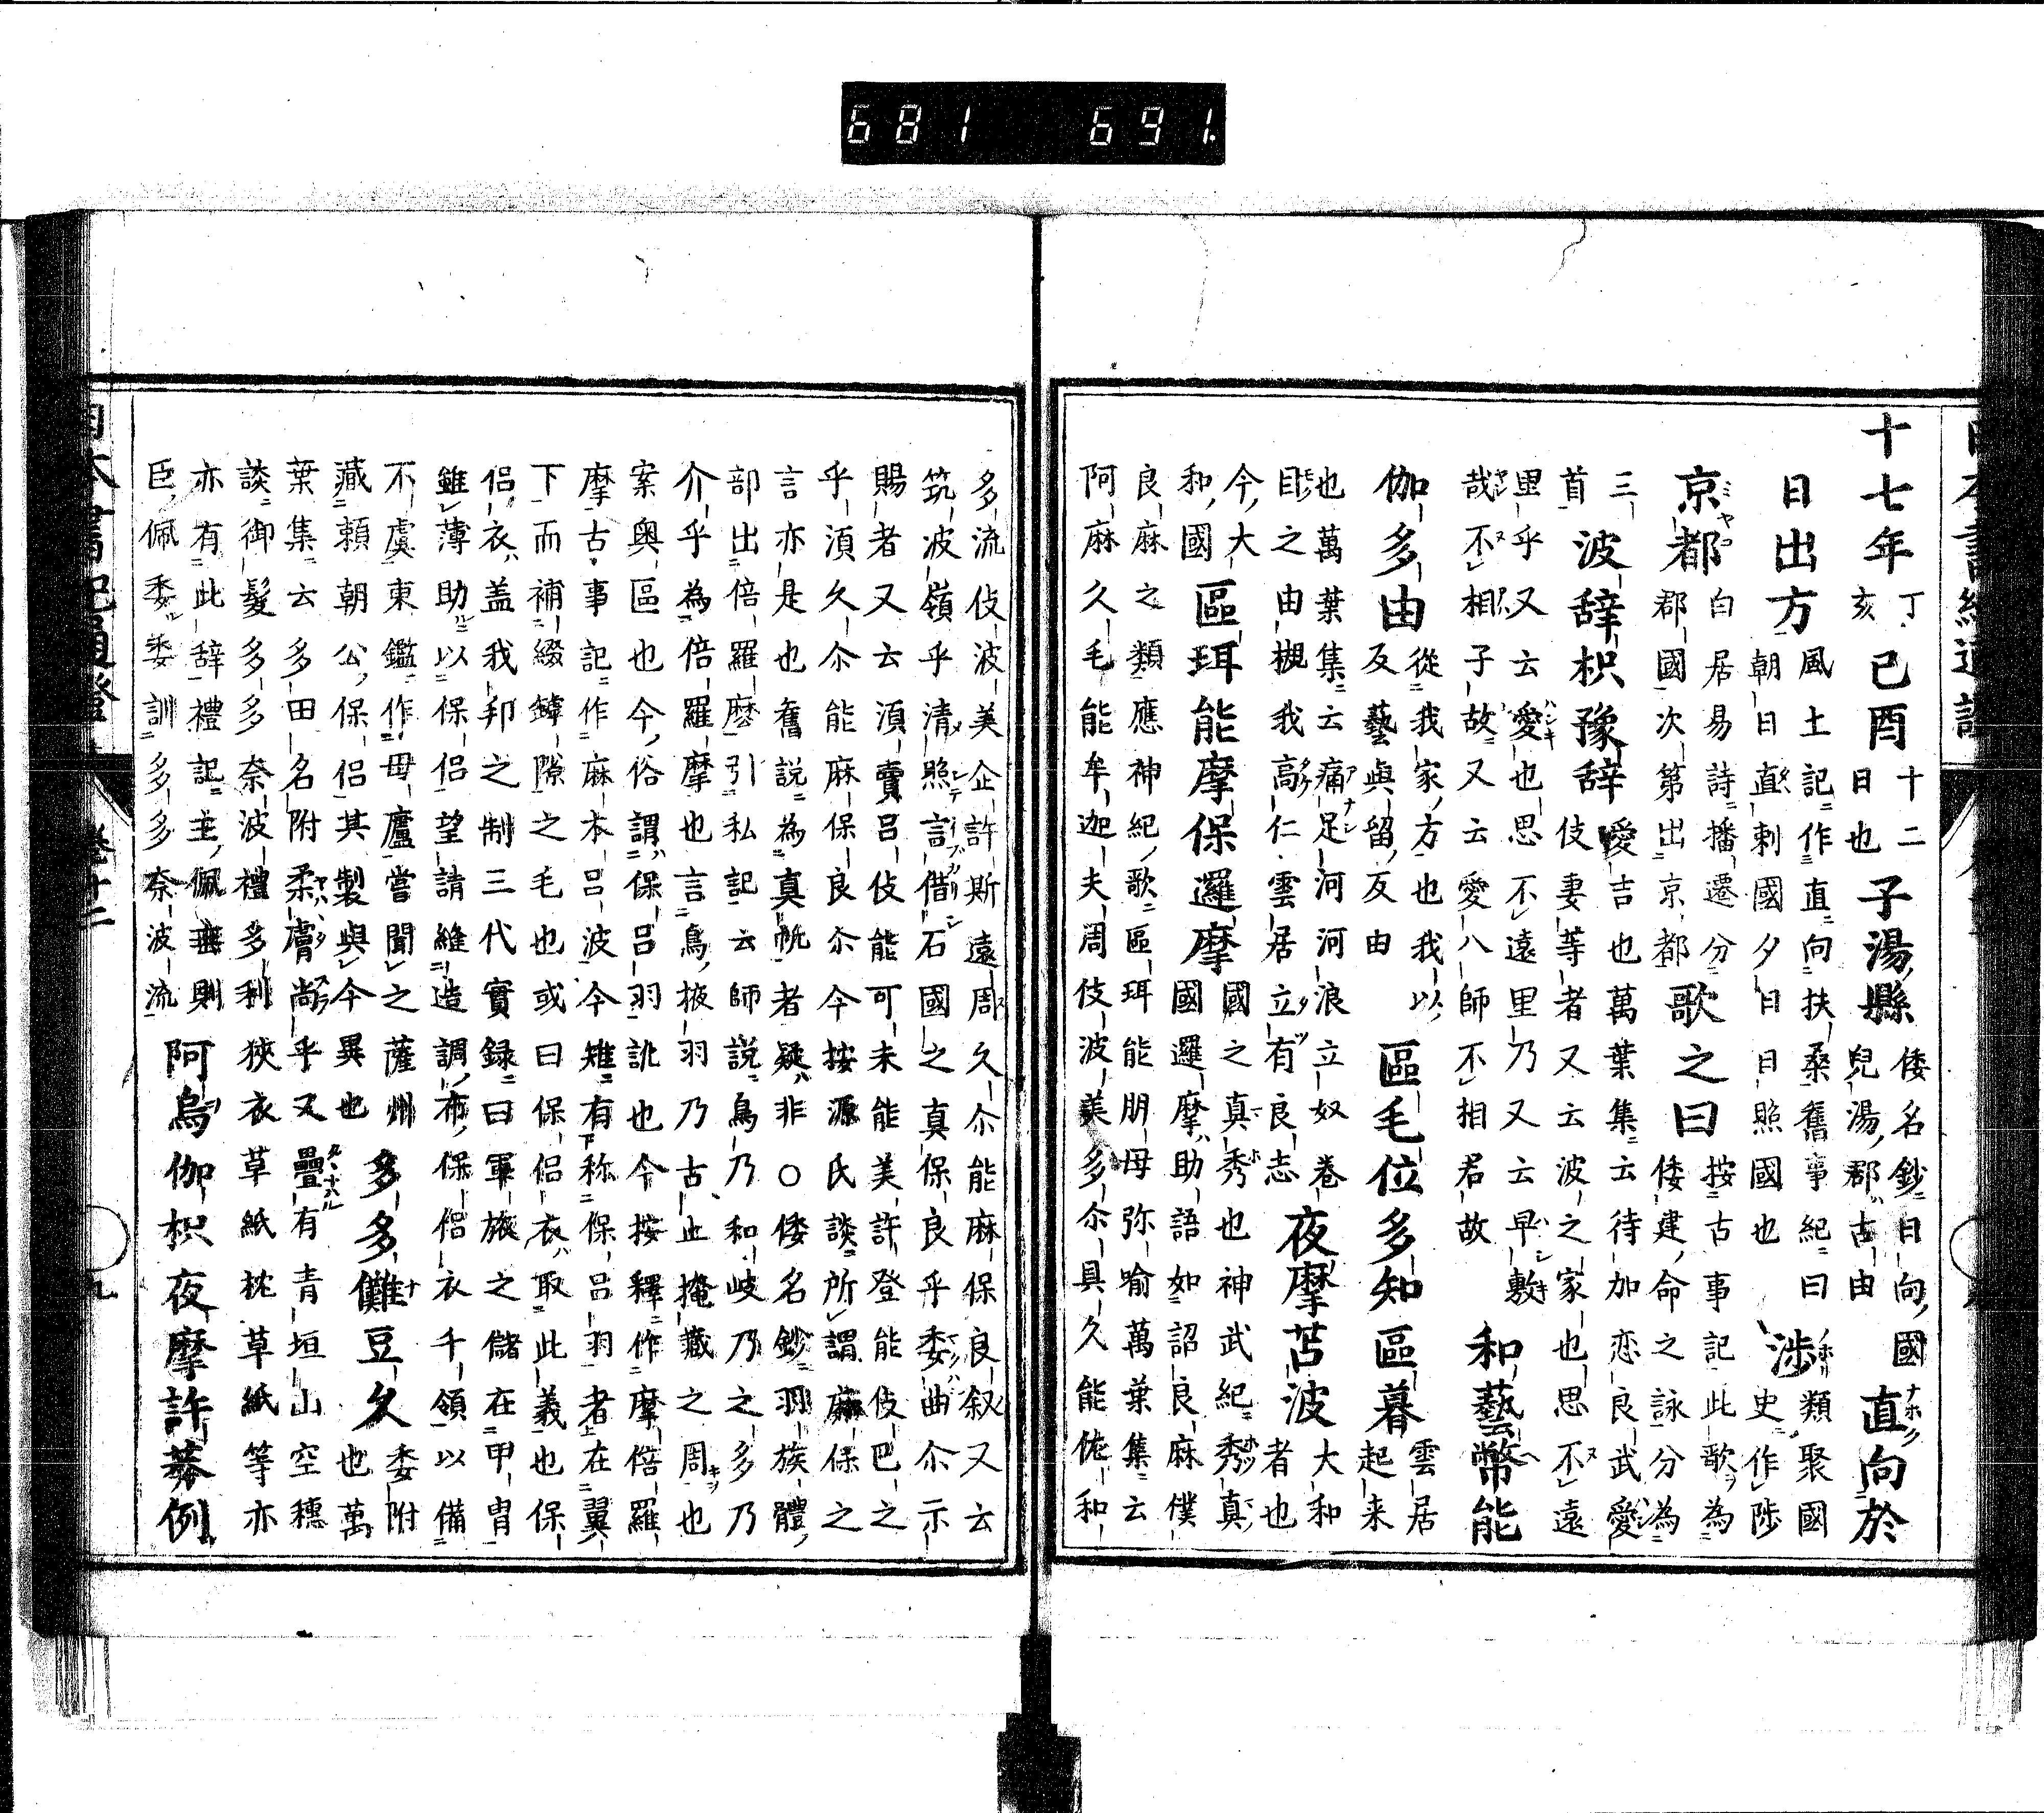 十七年
丁
亥
己酉
十二
日也
子湯縣
倭名鈔日向國
兒湯郡古由
直向於
日出方
風土記作直向扶桑舊事紀曰
朝日直刺國夕日日照國也
渉
類聚國
史作陟
京都
白居易詩播遷分
郡國次第出京都
歌之曰
按古事記此歌為
倭建命之詠分為
三
首
波辞枳豫辞
愛吉也萬葉集云待加恋良武愛
伎妻等者又云波之家也思不遠
里乎又云愛也思不遠里乃又云早敷
哉不相子故又云愛八師不相君故
和藝幣能
伽多由
從我家方也我以
反藝與留反由
區毛位多知區暮
雲居
起来
也萬葉集云痛足河河浪立奴卷
目之由槻我高仁雲居立有良志
夜摩苫波
大和
者也
今大
和國
區珥能摩保邏摩
國之真秀也神武紀秀真
國邏摩助語如詔良麻僕
良麻之類應神紀歌區珥能朋母弥喩萬葉集云
阿麻久毛能牟迦夫周伎波美多尒具久能佗和
多流伎波美企許斯遠周久尒能麻保良叙又云
筑波嶺乎清照言借石國之真保良乎委曲尒示
賜者又云湏賣呂伎能可未能美許登能伎巴之
乎湏久尒能麻保良尒今按源氏談所謂麻保之
言亦是也舊說為真帆者疑非○倭名鈔羽族體
部出倍羅麽引私記云師說鳥乃和岐乃之多乃
介乎為倍羅摩也言鳥掖羽乃古止掩藏之周也
案奥區也今俗謂保呂羽訛也今按釋作摩倍羅
摩古事記作麻本呂波今雉有称保呂羽者在翼
下而補綴罅隙之毛也或曰保侶衣取此義也保
侶衣盖我邦之制三代實録曰軍旅之儲在甲冑
雖薄助以保侶望請維造調布保侶衣千領以備
不虞東鑑作母廬嘗聞之薩州
藏頼朝公保侶其製與今異也
多多儺豆久
委附
也萬
葉集云多田名附柔膚尚乎又疊有青垣山空穗
談御髮多多奈波禮多利狹衣草紙枕草紙等亦
亦有此辞禮記主佩垂則
臣佩委委訓多多奈波流
阿烏伽枳夜摩許莽例
681 691